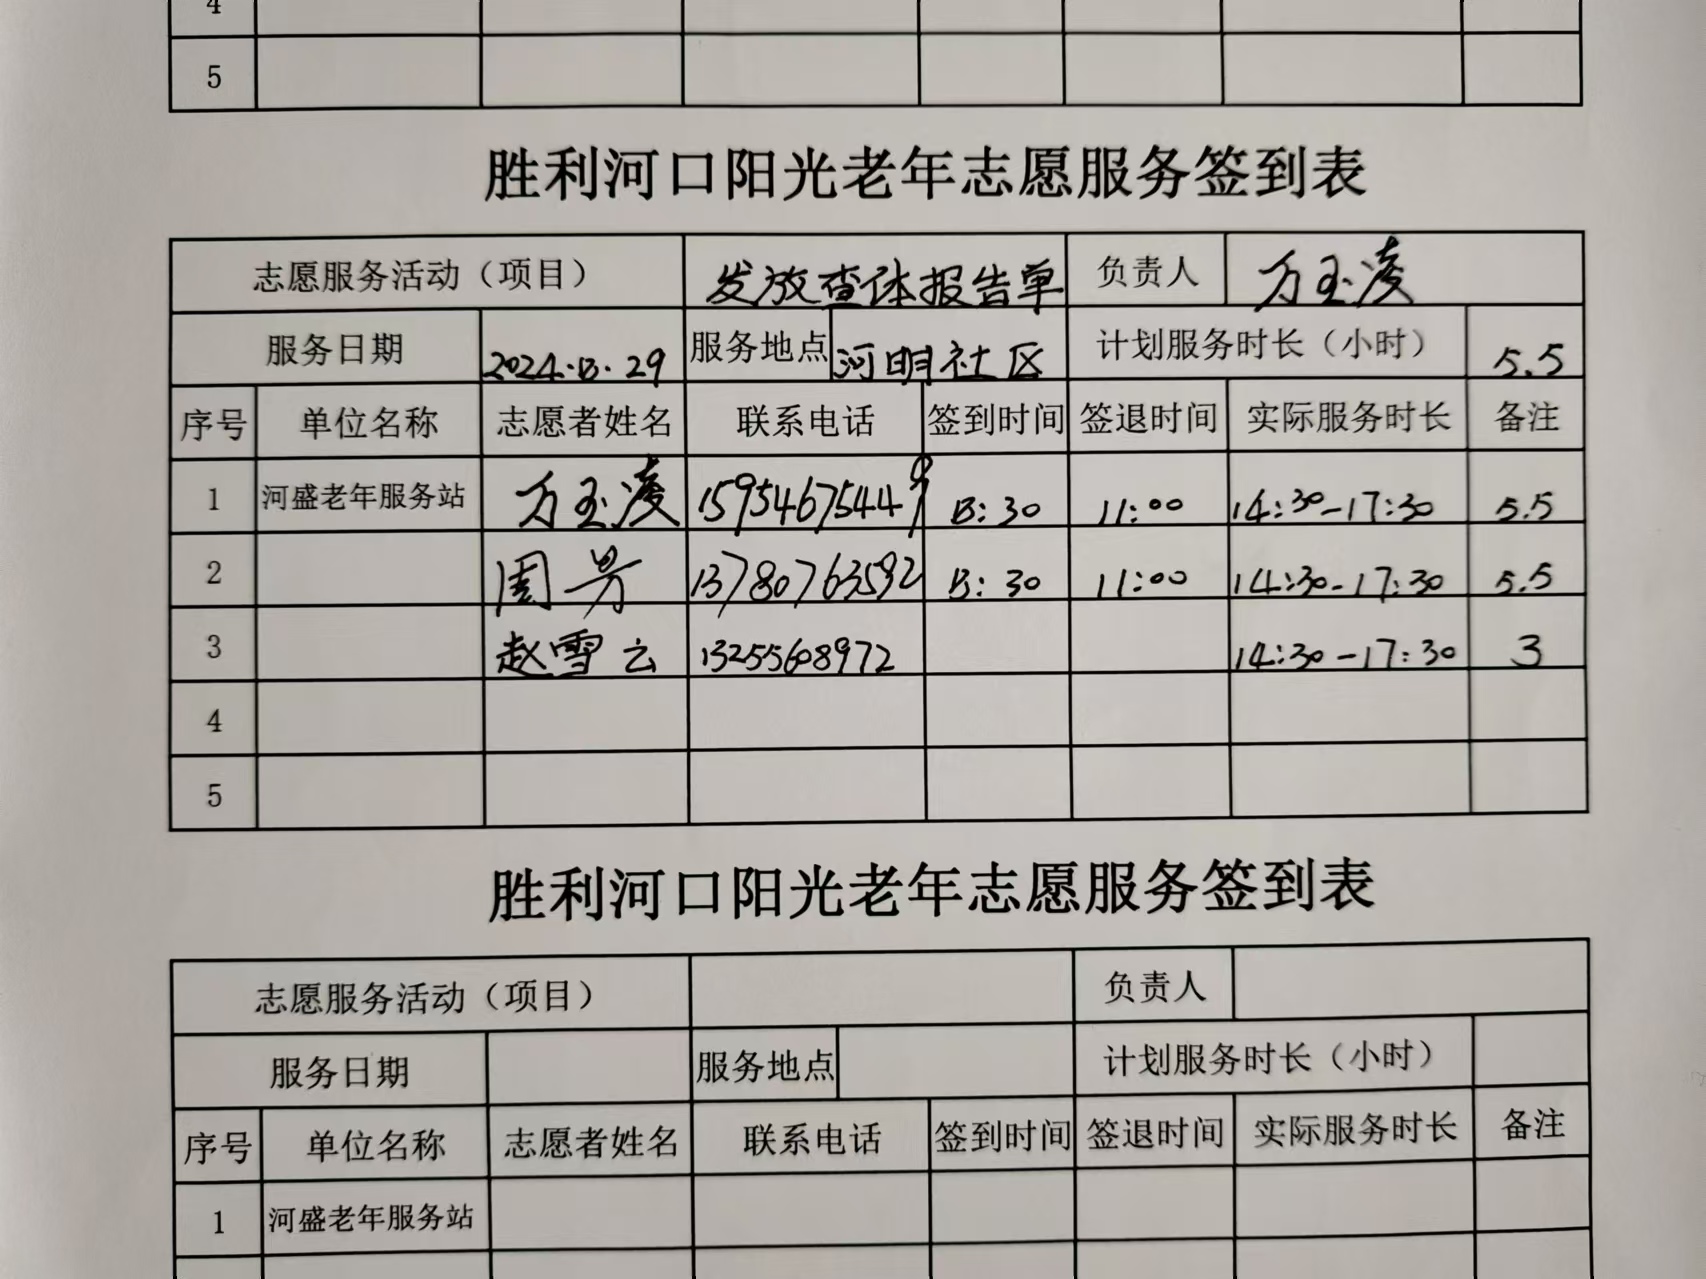 4
5
胜利河口阳光老年志愿服务签到表
志愿服务活动（项目） 发放查体报告单 负责人 万玉凌
服务日期 2024.8.29 服务地点 河明社区 计划服务时长（小时） 5.5
序号 单位名称 志愿者姓名 联系电话 签到时间 签退时间 实际服务时长 备注
1 河盛老年服务站 万玉凌 15954675449 8:30 11:00 14:30-17:30 5.5
2 周芳 13780763592 8:30 11:00 14:30-17:30 5.5
3 赵雪云 13255608972 14:30-17:30 3
4
5
胜利河口阳光老年志愿服务签到表
志愿服务活动（项目） 负责人
服务日期 服务地点 计划服务时长（小时）
序号 单位名称 志愿者姓名 联系电话 签到时间 签退时间 实际服务时长 备注
1 河盛老年服务站